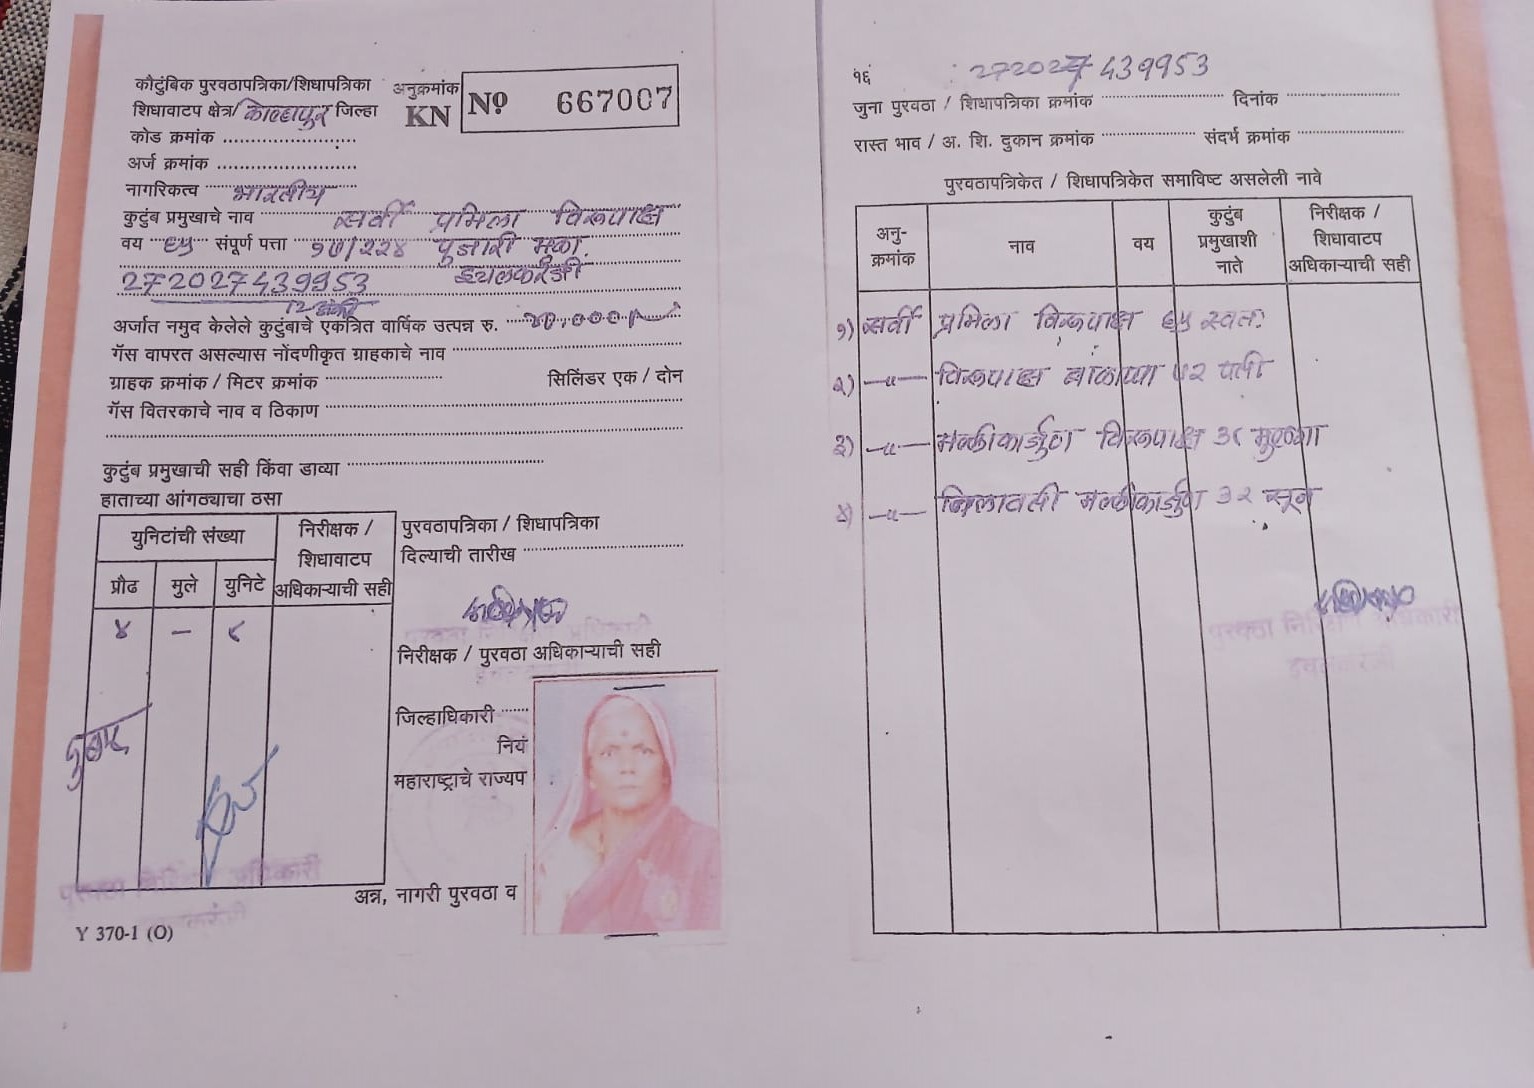 कौटुंबिक पुरवठापत्रिका/शिधापत्रिका अनुक्रमांक
शिधावाटप क्षेत्र/कोल्हापुर जिल्हा KN Nº 667007
कोड क्रमांक
अर्ज क्रमांक
नागरिकत्व भारतीय
कुटुंब प्रमुखाचे नाव सर्वी प्रमिला विरूपाक्ष
वय ६५ संपूर्ण पत्ता १७/२२४ पुजारी मळा
272027439953 इचलकरंजी
12 अंकी
अर्जात नमुद केलेले कुटुंबाचे एकत्रित वार्षिक उत्पन्न रु.
गॅस वापरत असल्यास नोंदणीकृत ग्राहकाचे नाव
ग्राहक क्रमांक / मिटर क्रमांक सिलिंडर एक / दोन
गॅस वितरकाचे नाव व ठिकाण
कुटुंब प्रमुखाची सही किंवा डाव्या
हाताच्या आंगठ्याचा ठसा
युनिटांची संख्या निरीक्षक / शिधावाटप अधिकाऱ्याची सही
प्रौढ मुले युनिटे
४ — ४
पुरवठापत्रिका / शिधापत्रिका
दिल्याची तारीख
निरीक्षक / पुरवठा अधिकाऱ्याची सही
जिल्हाधिकारी
नियं
महाराष्ट्राचे राज्यप
अन्न, नागरी पुरवठा व
दुबार
पुरवठा निरिक्षण अधिकारी
Y 370-1 (O)
१६ 272027439953
जुना पुरवठा / शिधापत्रिका क्रमांक दिनांक
रास्त भाव / अ. शि. दुकान क्रमांक संदर्भ क्रमांक
पुरवठापत्रिकेत / शिधापत्रिकेत समाविष्ट असलेली नावे
अनु-क्रमांक नाव वय कुटुंब प्रमुखाशी नाते निरीक्षक / शिधावाटप अधिकाऱ्याची सही
१) सर्वी प्रमिला विरूपाक्ष ६५ स्वतः
२) —॥— विरूपाक्ष बाळाप्पा ७२ पती
३) —॥— मल्लीकार्जुन विरूपाक्ष ३८ मुलगा
४) —॥— मल्लीकार्जुन ३२ सून
पुरवठा निरिक्षण अधिकारी
इचलकरंजी